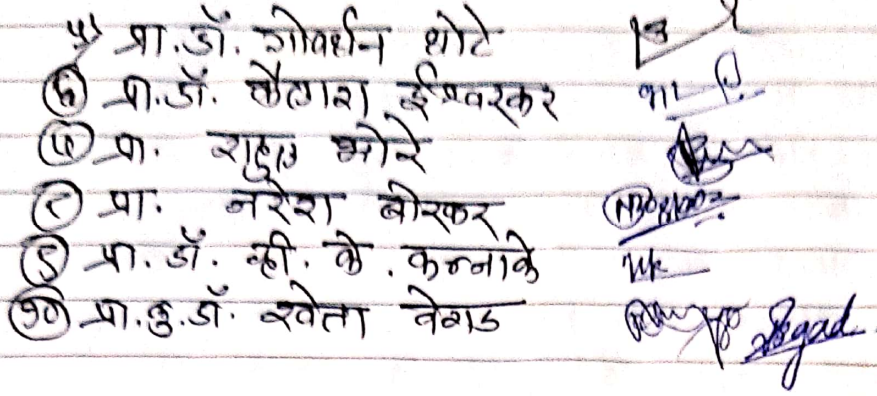 ५) प्रा.डॉ. गोवर्धन थोटे
६) प्रा.डॉ. कैलाश ईश्वरकर
७) प्रा. राहुल भोरे
८) प्रा. नरेश बोरकर
९) प्रा. डॉ. व्ही. के. कन्नाके
१०) प्रा.कु.डॉ. श्वेता वेगड